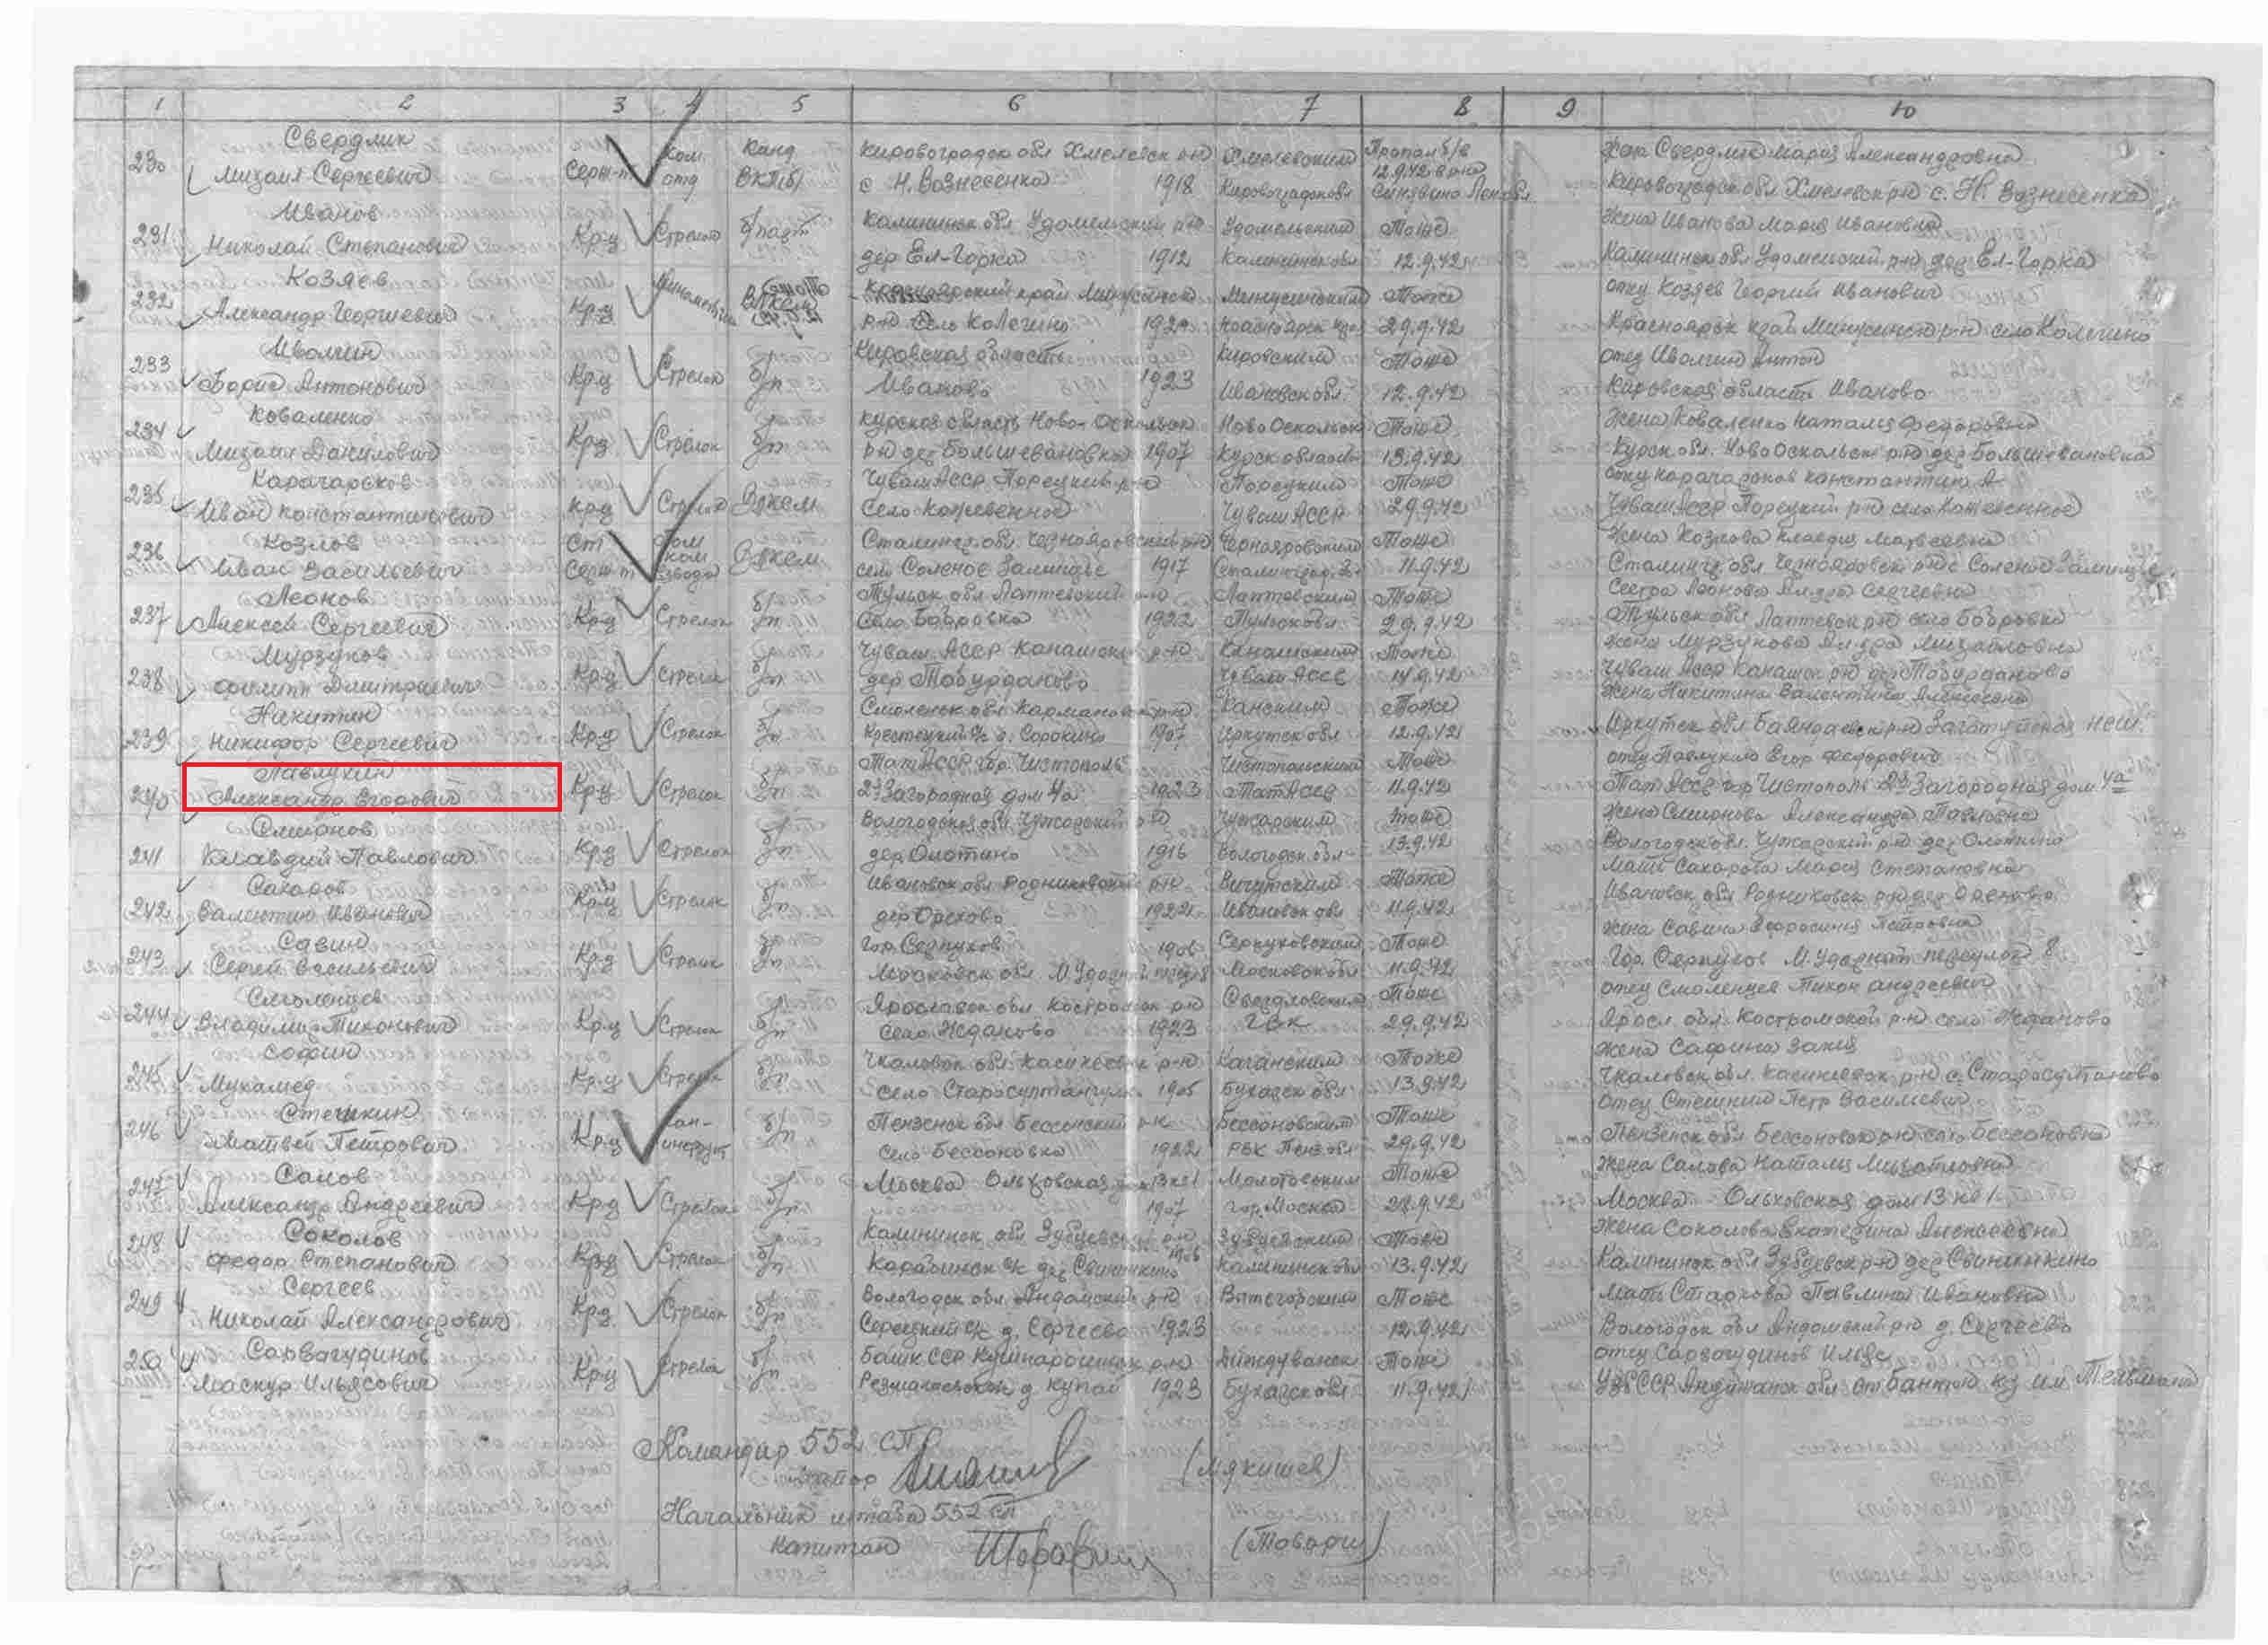 1 2 3 4 5 6 7 8 9 10
230 Свердлик
Михаил Сергеевич Серж-т Ком. отд Канд ВКП(б) Кировоградск обл Хмелевск р-н с. Н. Вознесенка 1918 Хмелевским Пропал б/в 12.9.42 в р-не Синявино Лен обл
Свердлик Мария Александровна
Кировоградск обл Хмелевск р-н с. Н. Вознесенка
231 Иванов
Николай Степанович Кр-ц Стрелок б/парт Калининск обл Удомельский р-н дер Ел-Горка 1912 Удомельский Калининск обл Тоже 12.9.42
жена Иванова Мария Ивановна
Калининск обл Удомельский р-н дер Ел-Горка
232 Козяев
Александр Георгиевич Кр-ц Красноярский край Минусинск р-н село Минусинский Красноярск Тоже 29.9.42
отец Козяев Георгий Иванович
Красноярск край Минусинск р-н село
233 Иволгин
Борис Антонович Кр-ц Стрелок б/п Кировская область Иваново 1923 Кировским Ивановск обл. Тоже 12.9.42
отец Иволгин Антон
Кировская область Иваново
234 Коваленко
Михаил Данилович Кр-ц Стрелок б/п Курская область Ново-Оскольск р-н дер Большевановка 1907 Ново Оскольск Курск область Тоже 13.9.42
жена Коваленко Наталия Федоровна
Курск обл. Ново Оскольск р-н дер Большевановка
235 Карачарсков
Иван Константинович Кр-ц Стрелок Влксм Чуваш АССР Порецкий р-н село Кожевенное Порецким Чуваш АССР Тоже 29.9.42
отец Карачарсков Константин А.
Чуваш АССР Порецкий р-н село Кожевенное
236 Козлов
Иван Васильевич Ст Серж-т Пом ком взвода Влксм Сталингр. обл. Чернояровский р-н село Соленое Займище 1917 Чернояровским Тоже 11.9.42
жена Козлова Клавдия Матвеевна
Сталингр обл Чернояровск р-н с Соленое Займище
237 Леонов
Алексей Сергеевич Кр-ц Стрелок б/п Тульск обл Лаптевский р-н село Бобровка 1922 Лаптевским Тульск обл Тоже 29.9.42
сестра Леонова Сергеевна
Тульск обл Лаптевск р-н село Бобровка
238 Мурзуков
Филипп Дмитриевич Кр-ц Стрелок б/п Чуваш. АССР Канашск р-н дер Тобурданово Канашским Чуваш АССР Тоже 14.9.42
жена Мурзукова Михайловна
Чуваш АССР Канашск р-н дер Тобурданово
239 Никитин
Никифор Сергеевич Кр-ц Стрелок б/п Смоленск обл Кармановск р-н Крестецкий с/с д. Сорокино 1907 Иркутск обл Тоже 12.9.42
жена Никитина Валентина Алексеевна
Иркутск обл Баяндаевск р-н
240 Павлухин
Александр Егорович Кр-ц Стрелок б/п Тат АССР гор. Чистополь 2я Загородная дом 4а 1923 Чистопольским Тат АССР Тоже 11.9.42
отец Павлухин Егор Федорович
Тат АССР гор Чистополь 2я Загородная дом 4а
241 Смирнов
Клавдий Павлович Кр-ц Стрелок б/п Вологодская обл. р-н дер 1916 Вологодск. обл Тоже 13.9.42
жена Смирнова Александра Павловна
Вологодск обл. р-н дер
242 Сахаров
Валентин Иванович Кр-ц Стрелок б/п Ивановск обл Родниковский р-н дер Орехово 1922 Вичугским Ивановск обл Тоже 11.9.42
мать Сахарова Мария Степановна
Ивановск обл Родниковск р-н дер Орехово
243 Савин
Сергей Васильевич Кр-ц Стрелок б/п Гор. Серпухов 1906 Московск обл. М. Ударный переул 8 Серпуховским Московск обл Тоже 11.9.42
жена Савина Ефросиния Петровна
Гор. Серпухов М. Ударный переулок 8
244 Смоленцев
Владимир Тихонович Кр-ц Стрелок б/п Ярославск обл Костромск р-н село Жданово 1923 Свердловским ГВК Тоже 29.9.42
отец Смоленцев Тихон Андреевич
Яросл. обл. Костромской р-н село Жданово
245 Софин
Мухамед Кр-ц Стрелок б/п Чкаловск обл. р-н село 1905 Каганским Бухарск обл Тоже 13.9.42
жена Сафина Закия
Чкаловск обл. р-н с.
246 Стешкин
Матвей Петрович Кр-ц Сан-инструт б/п Пензенск обл Бессонский р-н село Бессоновка 1922 Бессоновским РВК Пенз обл Тоже 29.9.42
отец Стешкин Петр Васильевич
Пензенск обл Бессоновск р-н село Бессоновка
247 Салов
Александр Андреевич Кр-ц Стрелок б/п Москва Ольховская д. 13 кв 1 1907 Молотовским гор. Москва Тоже 28.9.42
жена Салова Наталия Михайловна
Москва Ольховская дом 13 кв 1
248 Соколов
Федор Степанович Кр-ц Стрелок б/п Калининск обл Зубцовск р-н с/с дер Свининкино 1906 Зубцовский Калининск обл Тоже 13.9.42
жена Соколова Екатерина Алексеевна
Калининск обл Зубцовск р-н дер Свининкино
249 Сергеев
Николай Александрович Кр-ц Стрелок б/п Вологодск обл Андомский р-н с/с д. Сергеево 1923 Вытегорским Тоже 12.9.42
мать Стархова Павлина Ивановна
Вологодск обл Андомский р-н д. Сергеево
250 Сарвагудинов
Маскур Ильясович Кр-ц Стрелок б/п Башк ССР р-н д Купай 1923 Бухарск обл Тоже 11.9.42
отец Сарвагудинов Ильяс
Узб ССР Андижанск обл кз им Тельмана
Командир 552 СП
Майор (Мякишев)
Начальник штаба 552 сп
Капитан